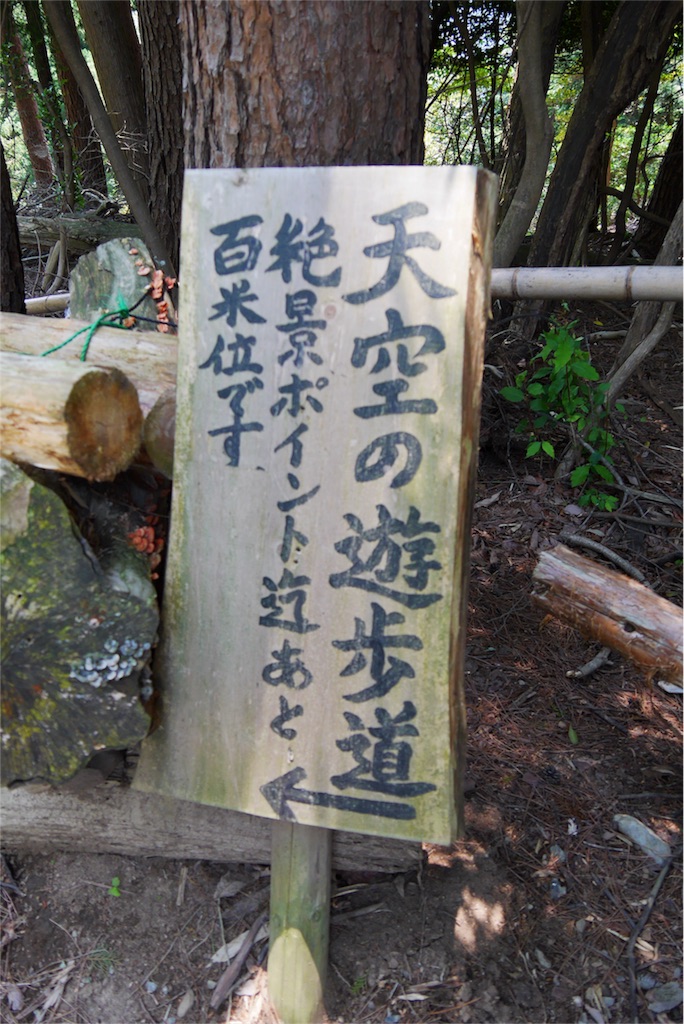 天空の遊歩道
絶景ポイント迄あと
百米位です